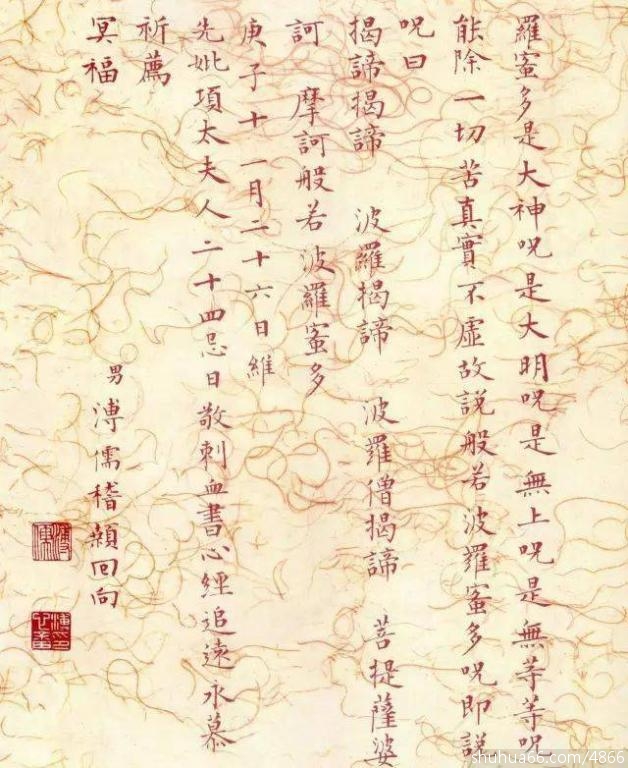 羅蜜多是大神咒是大明咒是無上咒是無等等咒
能除一切苦真實不虛故說般若波羅蜜多咒即說
咒曰
揭諦揭諦 波羅揭諦 波羅僧揭諦 菩提薩婆
訶 摩訶般若波羅蜜多
庚子十一月二十六日維
先妣項太夫人二十四忌日敬刺血書心經追遠永慕
祈薦
冥福
男溥儒稽顙回向
溥儒
shuhua66.com/4866